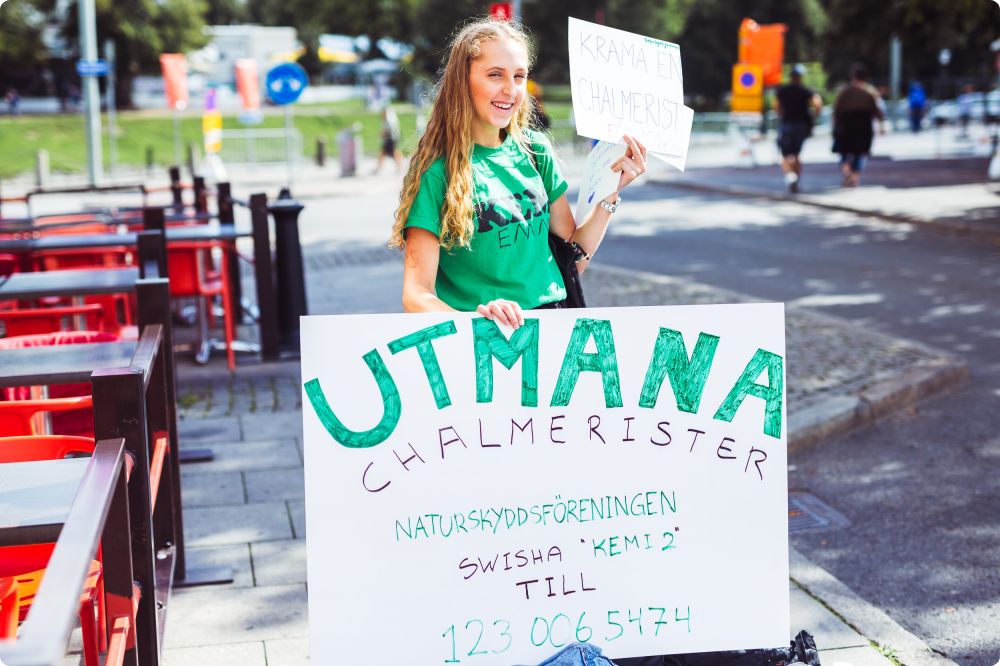 KRAMA EN
CHALMERIST
EMMA
UTMANA
CHALMERISTER
NATURSKYDDSFÖRENINGEN
SWISHA "KEMI 2"
TILL
123 006 5474